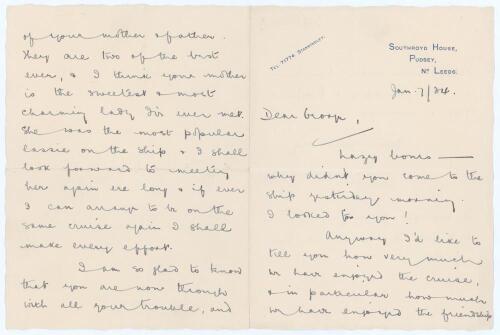 Tel. 71776 Stanningley.
Southroyd House,
Pudsey,
Nr Leeds.
Jan. 7/34.
Dear George,
Lazy bones —
why didn't you come to the
ship yesterday morning.
I looked for you!
Anyway I'd like to
tell you how very much
we have enjoyed the cruise,
& in particular how much
we have enjoyed the friendship
of your mother & father.
They are two of the best
ever, & I think your mother
is the sweetest & most
charming lady I've ever met.
She was the most popular
lassie on the ship & I shall
look forward to meeting
her again ere long & if ever
I can arrange to be on the
same cruise again I shall
make every effort.
I am so glad to know
that you are now through
with all your trouble, and